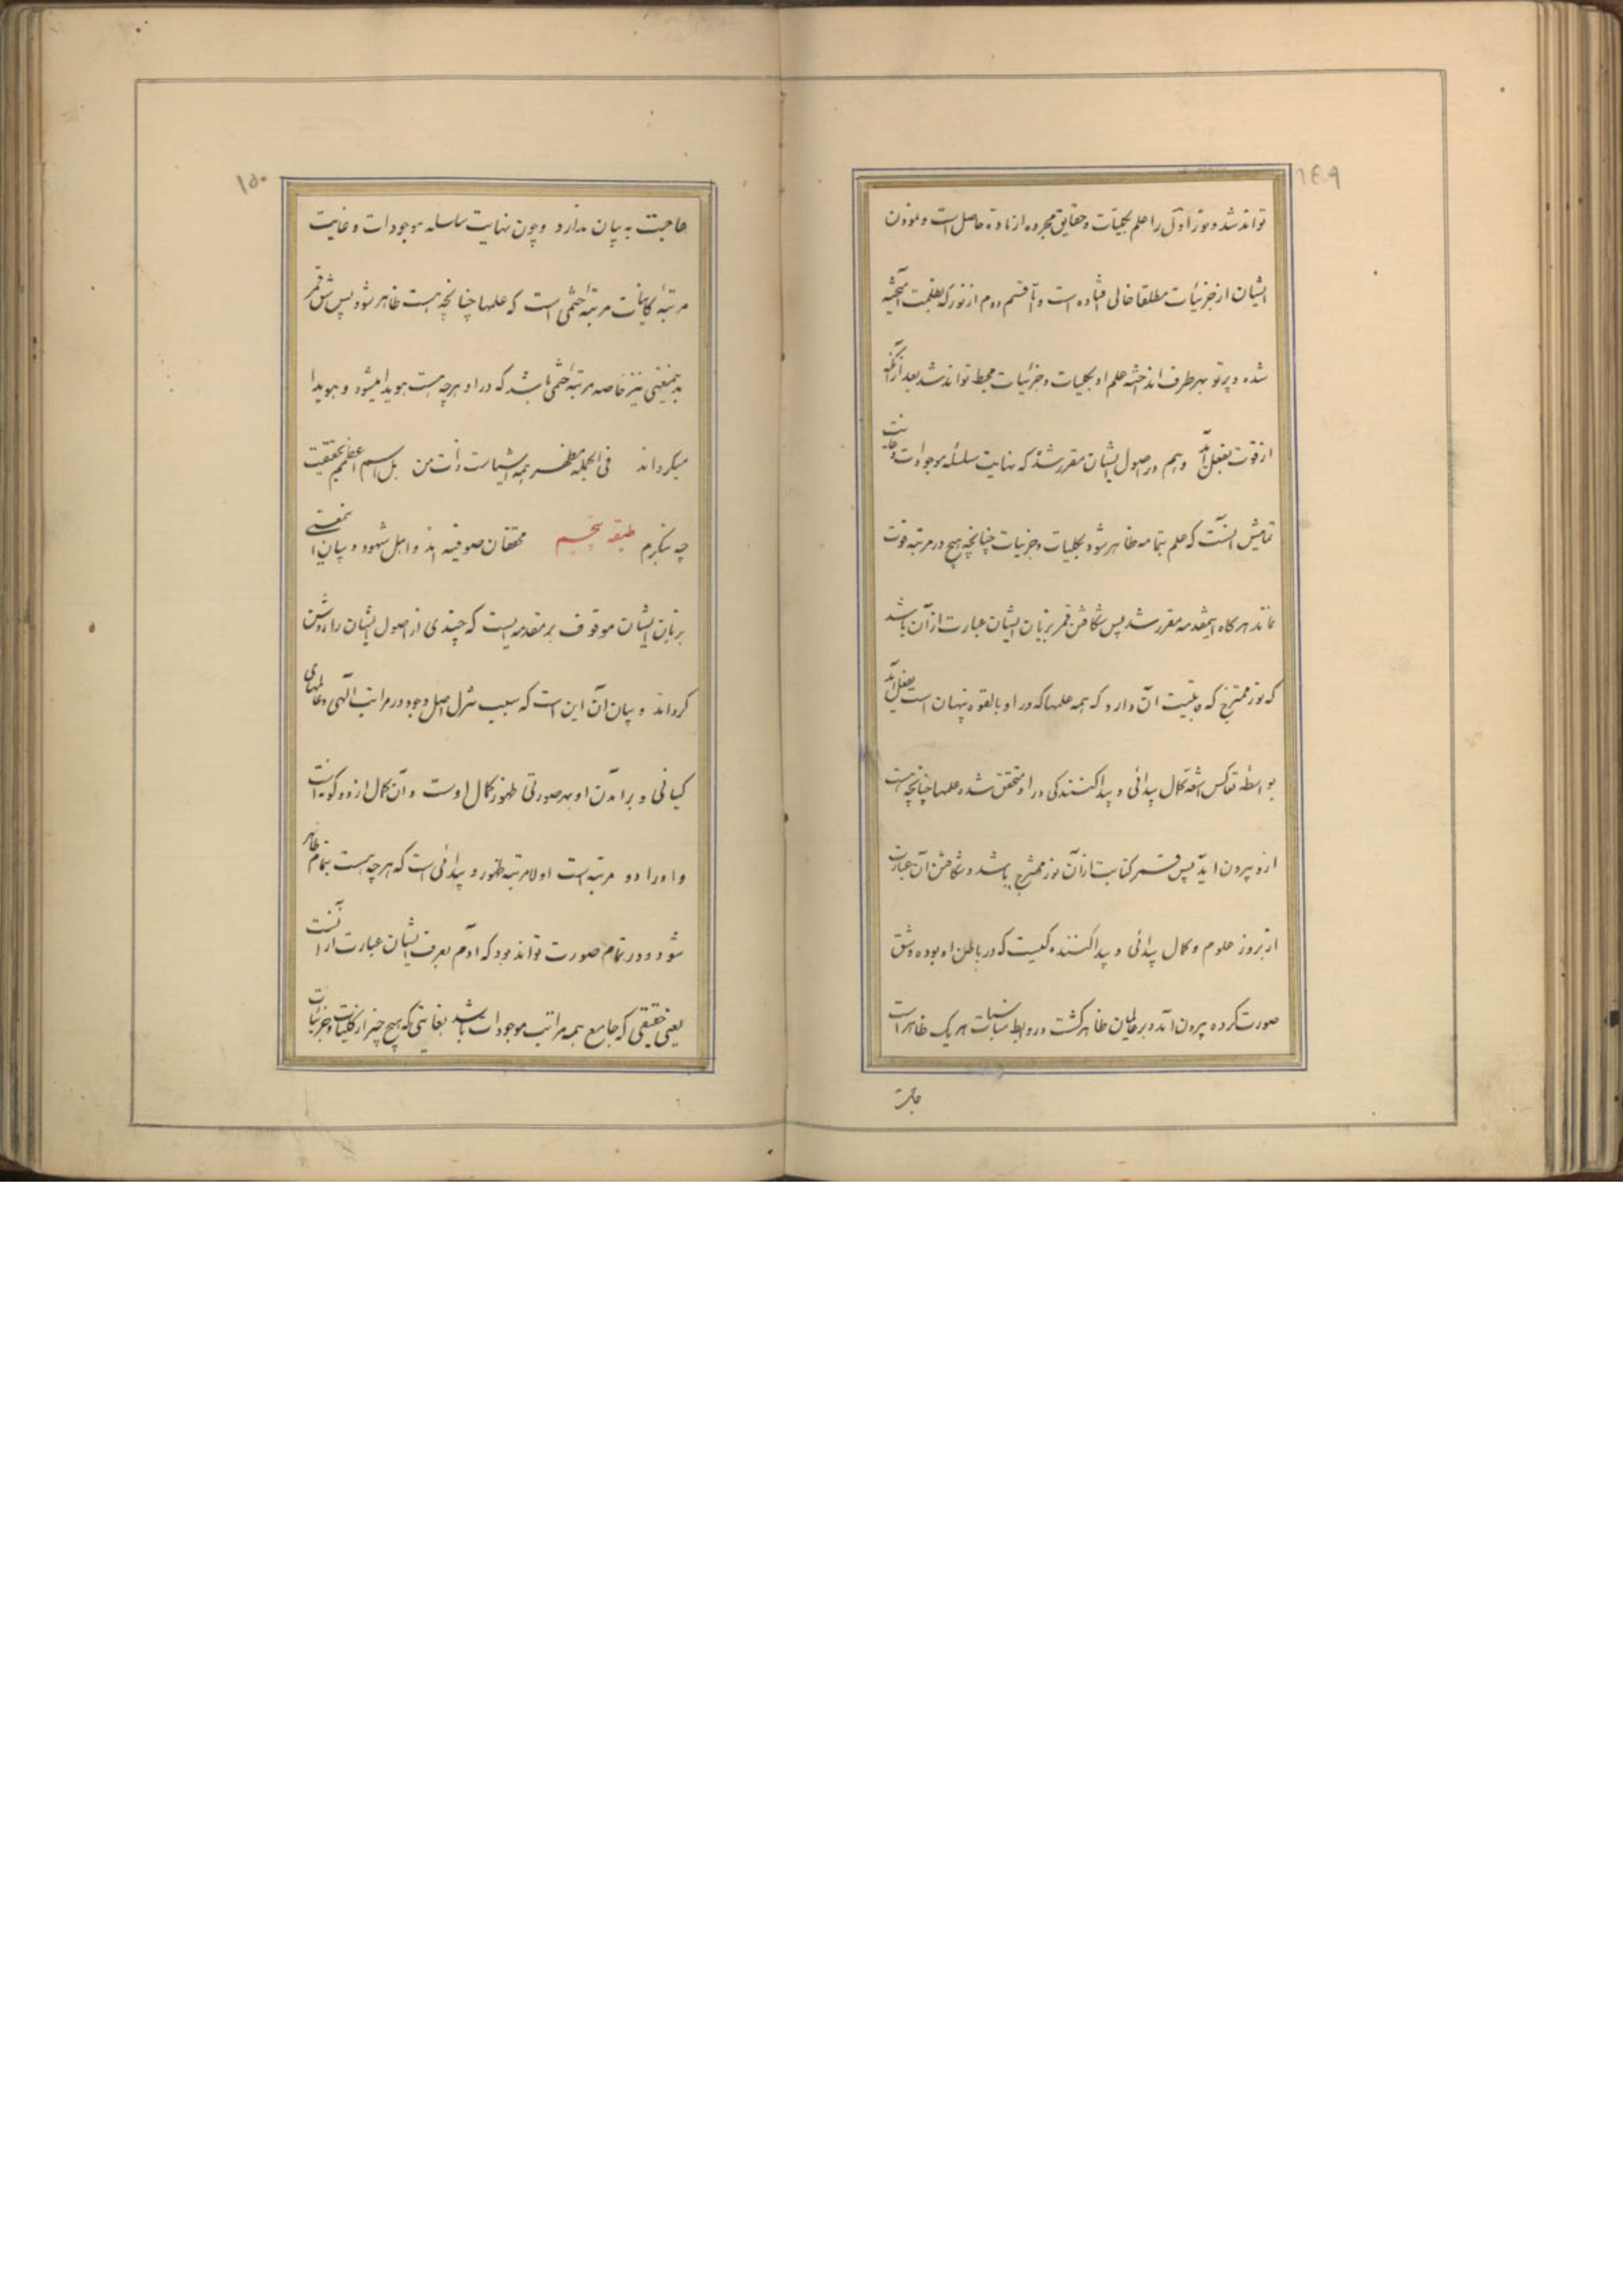 ١٤٩
تواند شد و نور اول را علم بکلیات و حقایق مجرده از ماده حاصل است و نمودن
ایشان از جزئیات مطلقا خالی افتاده است و آن قسم دوم از نور که بظلمت آمیخته
شده و پرتو بهر طرف انداخته علم او بکلیات و جزئیات محیط تواند شد بعد از آنکه
از قوت بفعل آید و هم در اصول ایشان مقرر شده که نهایت سلسله موجودات و غایت
تمامیش آنست که علم بتمامه ظاهر شود بکلیات و جزئیات چنانچه هیچ در مرتبه قوت
نماند هر گاه اینمقدمه مقرر شد پس شکافتن قمر بزبان ایشان عبارت از آن باشد
که نور ممتزج که قابلیت آن دارد که همه علمها که در او بالقوه پنهان است بفعل آید
بواسطه تعاکس اشعه کمال پیدائی و پیداکنندگی در او متحقق شده علمها چنانچه هست
ازو بیرون آید پس قمر کنایت از آن نور ممتزج باشد و شکافتن آن عبارت
از بروز علوم و کمال پیدائی و پیداکنندگیست که در باطن او بوده و شق
صورت کرده بیرون آمد و بر عالمیان ظاهر گشت و روابط مناسبات هر یک ظاهر است
حاجت
١٥٠
حاجت به بیان ندارد و چون نهایت سلسله موجودات و غایت
مرتبه کاینات مرتبه ختمی است که علمها چنانچه هست ظاهر شود پس شق قمر
بدینمعنی نیز خاصه مرتبه ختمی باشد که در او هر چه هست هویدا میشود و هویدا
میگرداند فی الجمله مظهر همه اشیاست ذات من بل اسم اعظمم بحقیقت
چه بنگرم طبقه پنجم محققان صوفیه اند و اهل شهود و بیان اینمعنی
بزبان ایشان موقوف بر مقدمه ایست که چندی از اصول ایشان را روشن
گرداند و بیان آن این است که سبب تنزل اصل وجود در مراتب الهی و عالمهای
کیانی و برآمدن او بهر صورتی ظهور کمال اوست و آن کمال از دو گونه است
و او را دو مرتبه است اولا مرتبه ظهور و پیدائی است که هر چه هست بتمام ظاهر
شود و در تمام صورت تواند بود که آدم بعرف ایشان عبارت از آنست
یعنی حقیقی که جامع همه مراتب موجودات باشد بغایتی که هیچ چیز از کلیات و جزئیات